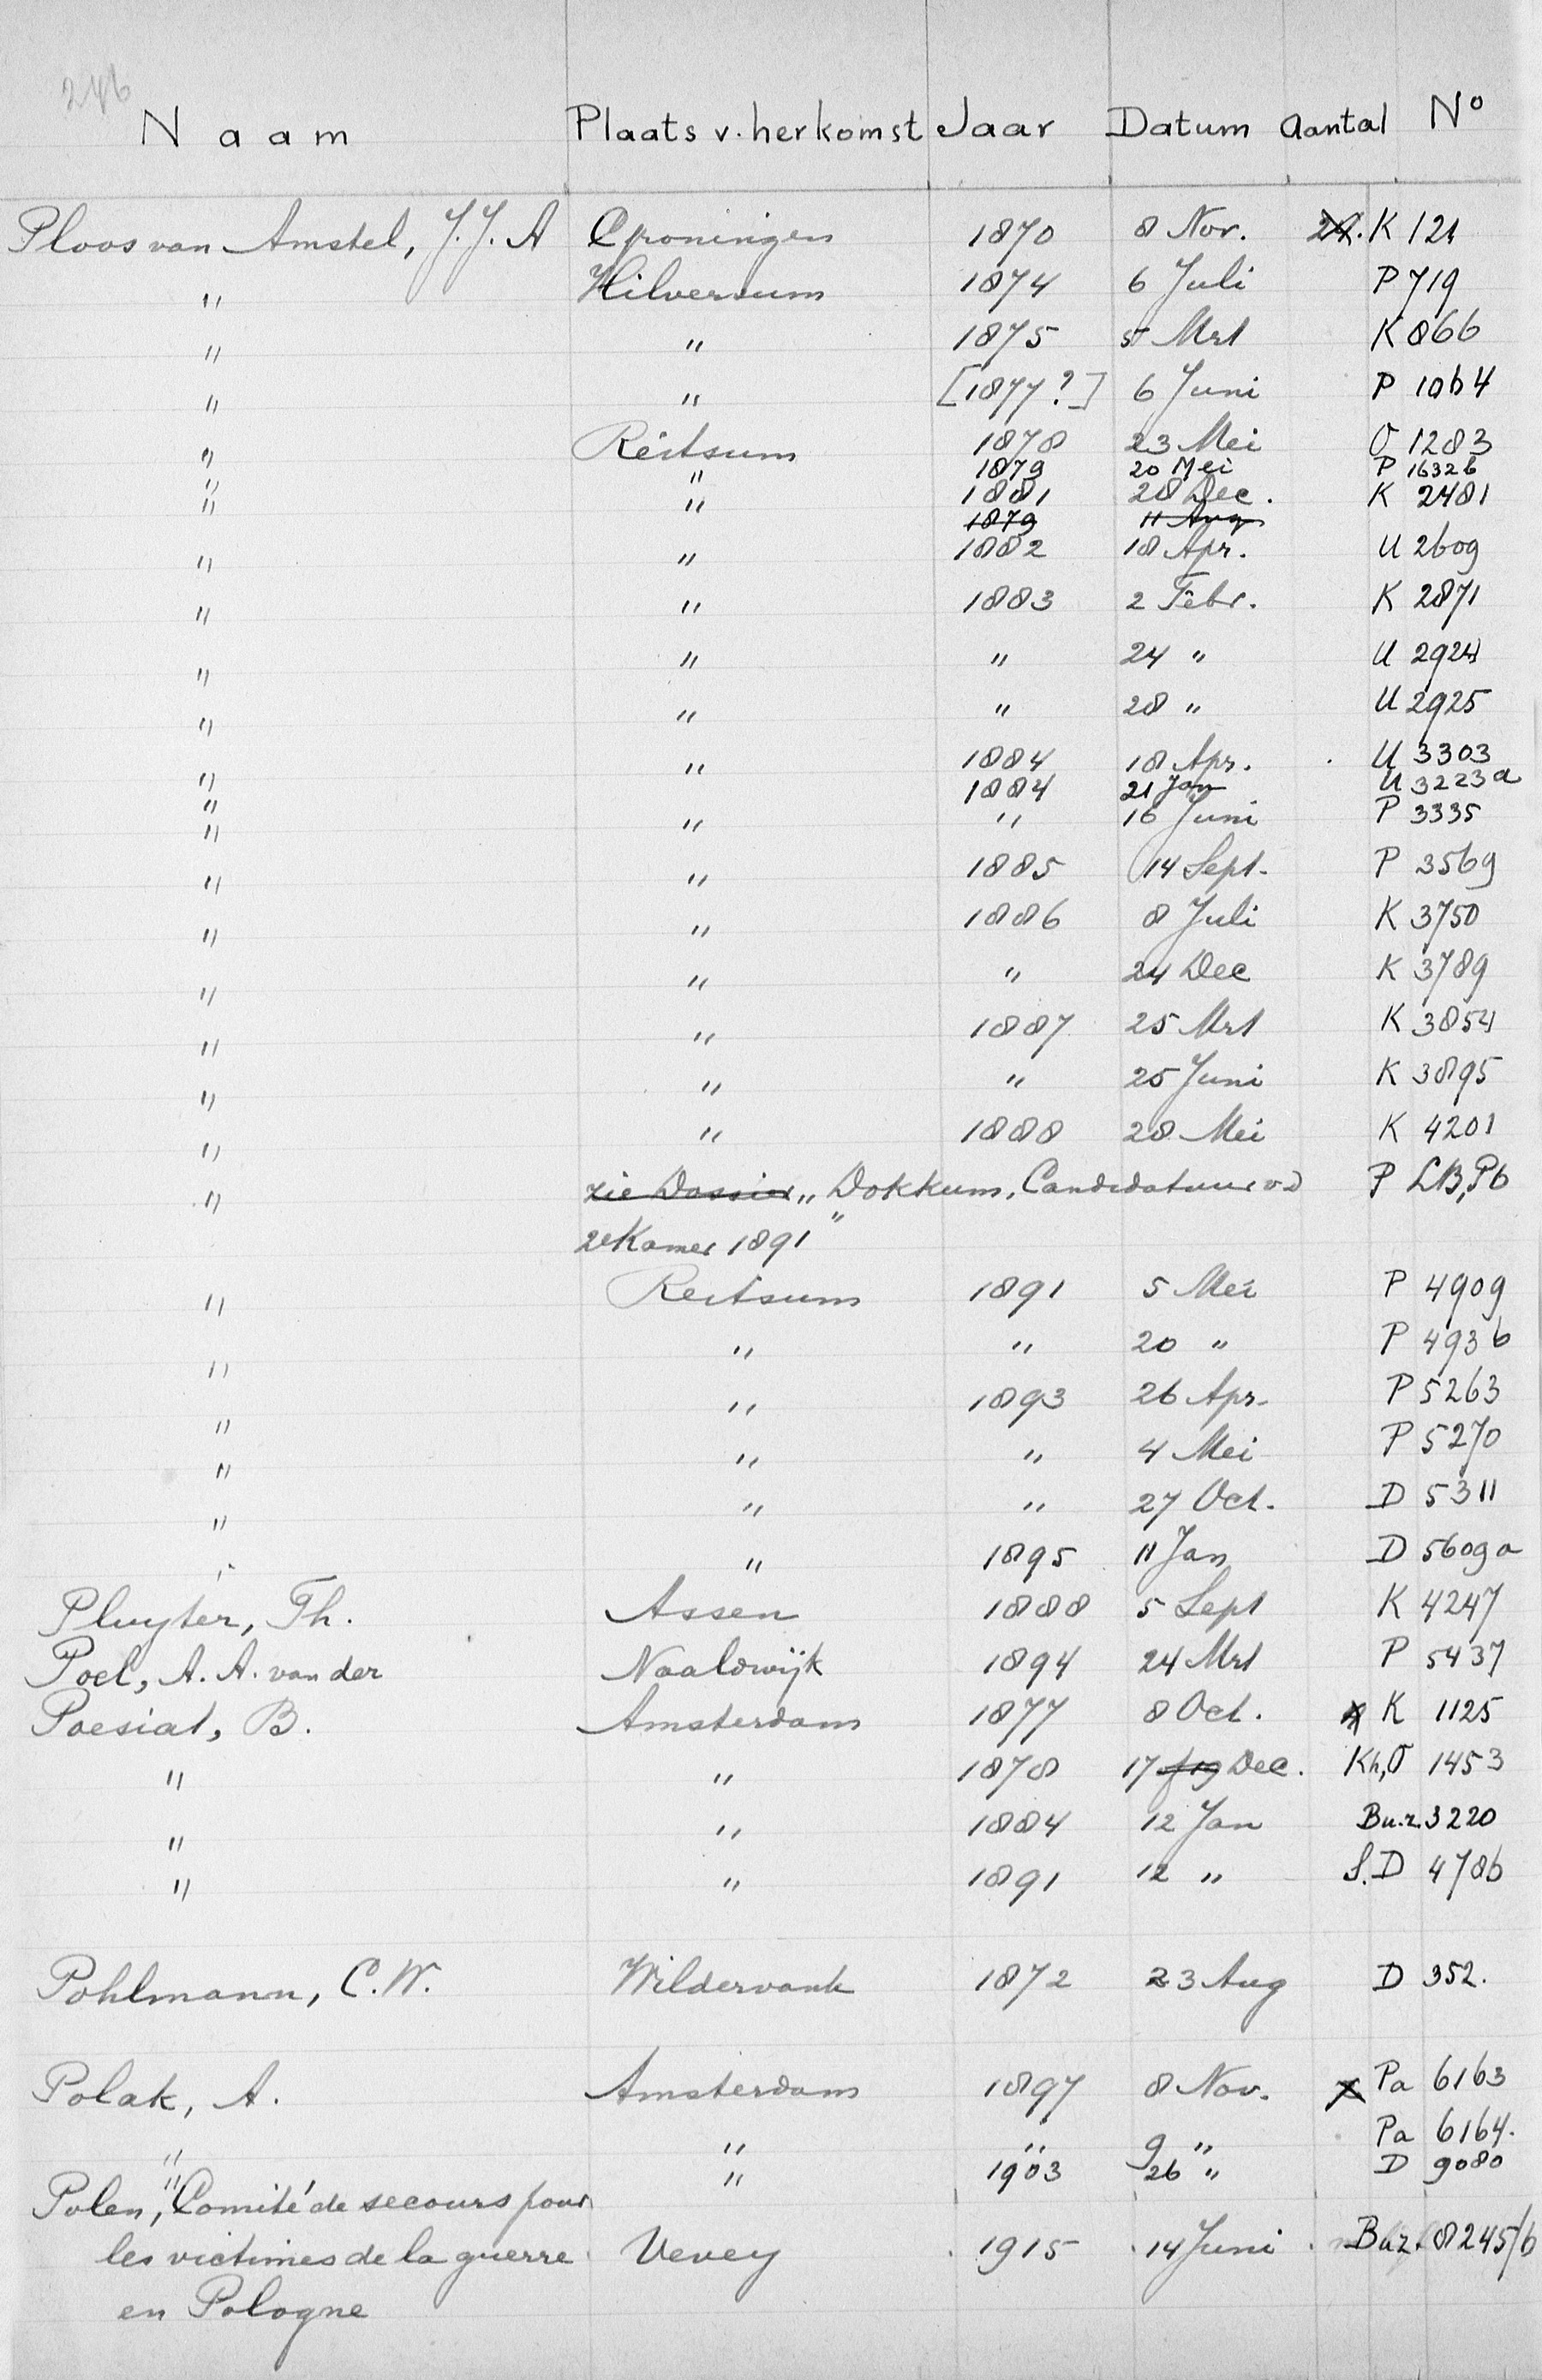 246
Naam Plaats v. herkomst Jaar Datum Aantal No
Ploos van Amstel, J.J.A Groningen 1870 8 Nov. K 121
" Hilversum 1874 6 Juli P 719
" " 1875 5 Mrt K 866
" " [1877?] 6 Juni P 1064
" Reitsum 1878 23 Mei O 1283
" " 1879 20 Mei P 1632b
" " 1881 28 Dec. K 2481
1879 11 Aug
" " 1882 18 Apr. U 2609
" " 1883 2 Febr. K 2871
" " " 24 " U 2924
" " " 28 " U 2925
" " 1884 18 Apr. U 3303
" 1884 21 Jan U 3223a
" " " 16 Juni P 3335
" " 1885 14 Sept. P 3569
" " 1886 8 Juli K 3750
" " " 24 Dec K 3789
" " 1887 25 Mrt K 3854
" " " 25 Juni K 3895
" " 1888 28 Mei K 4201
" zie Dossier „Dokkum, Candidatuur v.d. P LB, Pb
2e Kamer 1891"
" Reitsum 1891 5 Mei P 4909
" " " 20 " P 4936
" " 1893 26 Apr. P 5263
" " " 4 Mei P 5270
" " " 27 Oct. D 5311
" " 1895 11 Jan D 5609a
Pluyter, Th. Assen 1888 5 Sept K 4247
Poel, A. A. van der Naaldwijk 1894 24 Mrt P 5437
Poesiat, B. Amsterdam 1877 8 Oct. K 1125
" " 1878 17 Dec. Kh, O 1453
" " 1884 12 Jan Bu.z. 3220
" " 1891 12 " S.D 4786
Pohlmann, C.W. Wildervank 1872 23 Aug D 352.
Polak, A. Amsterdam 1897 8 Nov. x Pa 6163
" " " 9 " Pa 6164.
" " 1903 26 " D 9080
Polen, Comité de secours pour
les victimes de la guerre Vevey 1915 14 Juni Buz. 8245/b
en Pologne